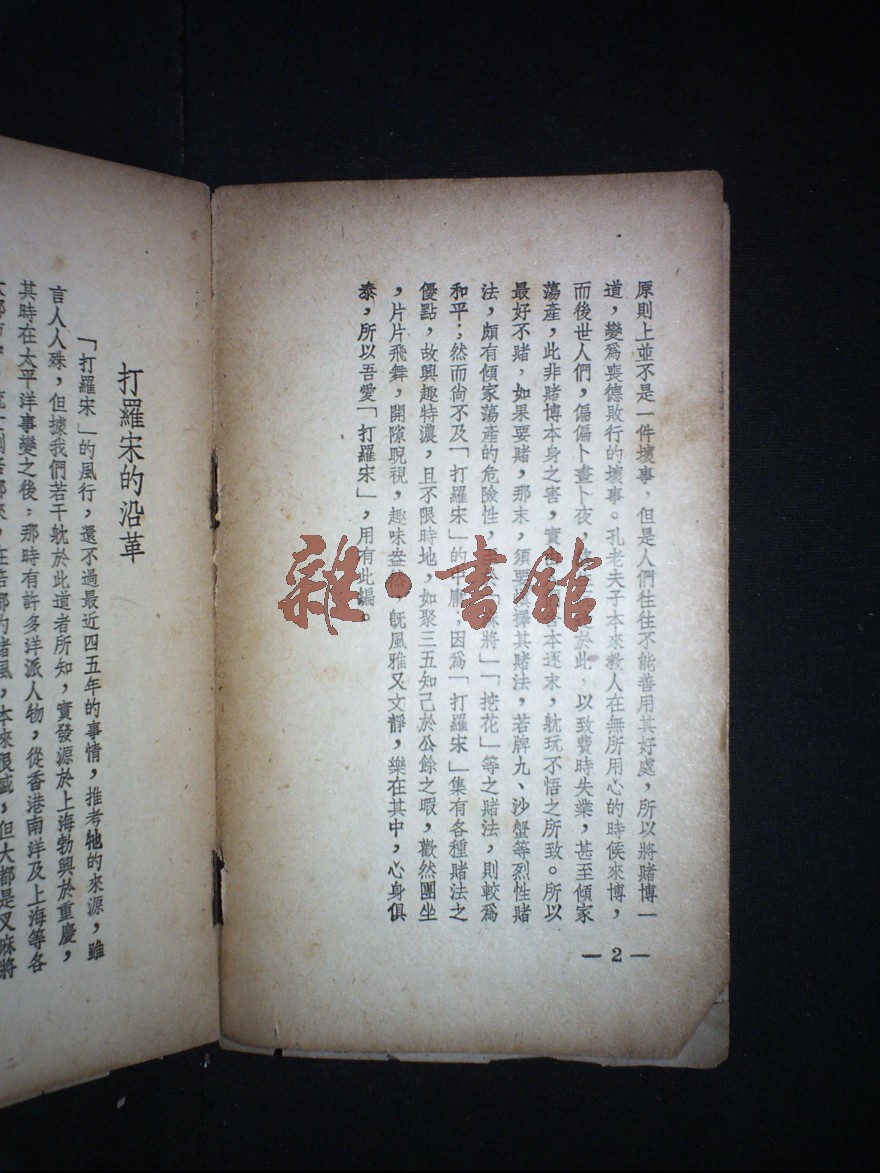 原則上並不是一件壞事，但是人們往往不能善用其好處，所以將賭博一
道，變爲喪德敗行的壞事。孔老夫子本來教人在無所用心的時候來博，
而後世人們，偏偏卜晝卜夜，於此，以致費時失業，甚至傾家
蕩產，此非賭博本身之害，實本逐末，躭玩不悟之所致。所以
最好不賭，如果要賭，那末，須要擇其賭法，若牌九、沙蟹等烈性賭
法，頗有傾家蕩產的危險性，將」「挖花」等之賭法，則較爲
和平；然而尙不及「打羅宋」的中庸；因爲「打羅宋」集有各種賭法之
優點，故興趣特濃，且不限時地，如聚三五知己於公餘之暇，歡然團坐
，片片飛舞，開隙睨視，趣味盎然，旣風雅又文靜，樂在其中，心身俱
泰，所以吾愛「打羅宋」，用有此編。
— 2 —
雜·書館
打羅宋的沿革
「打羅宋」的風行，還不過最近四五年的事情，推考牠的來源，雖
言人人殊，但據我們若干躭於此道者所知，實發源於上海勃興於重慶，
其時在太平洋事變之後；那時有許多洋派人物，從香港南洋及上海等各
本來很盛，但大都是叉麻將